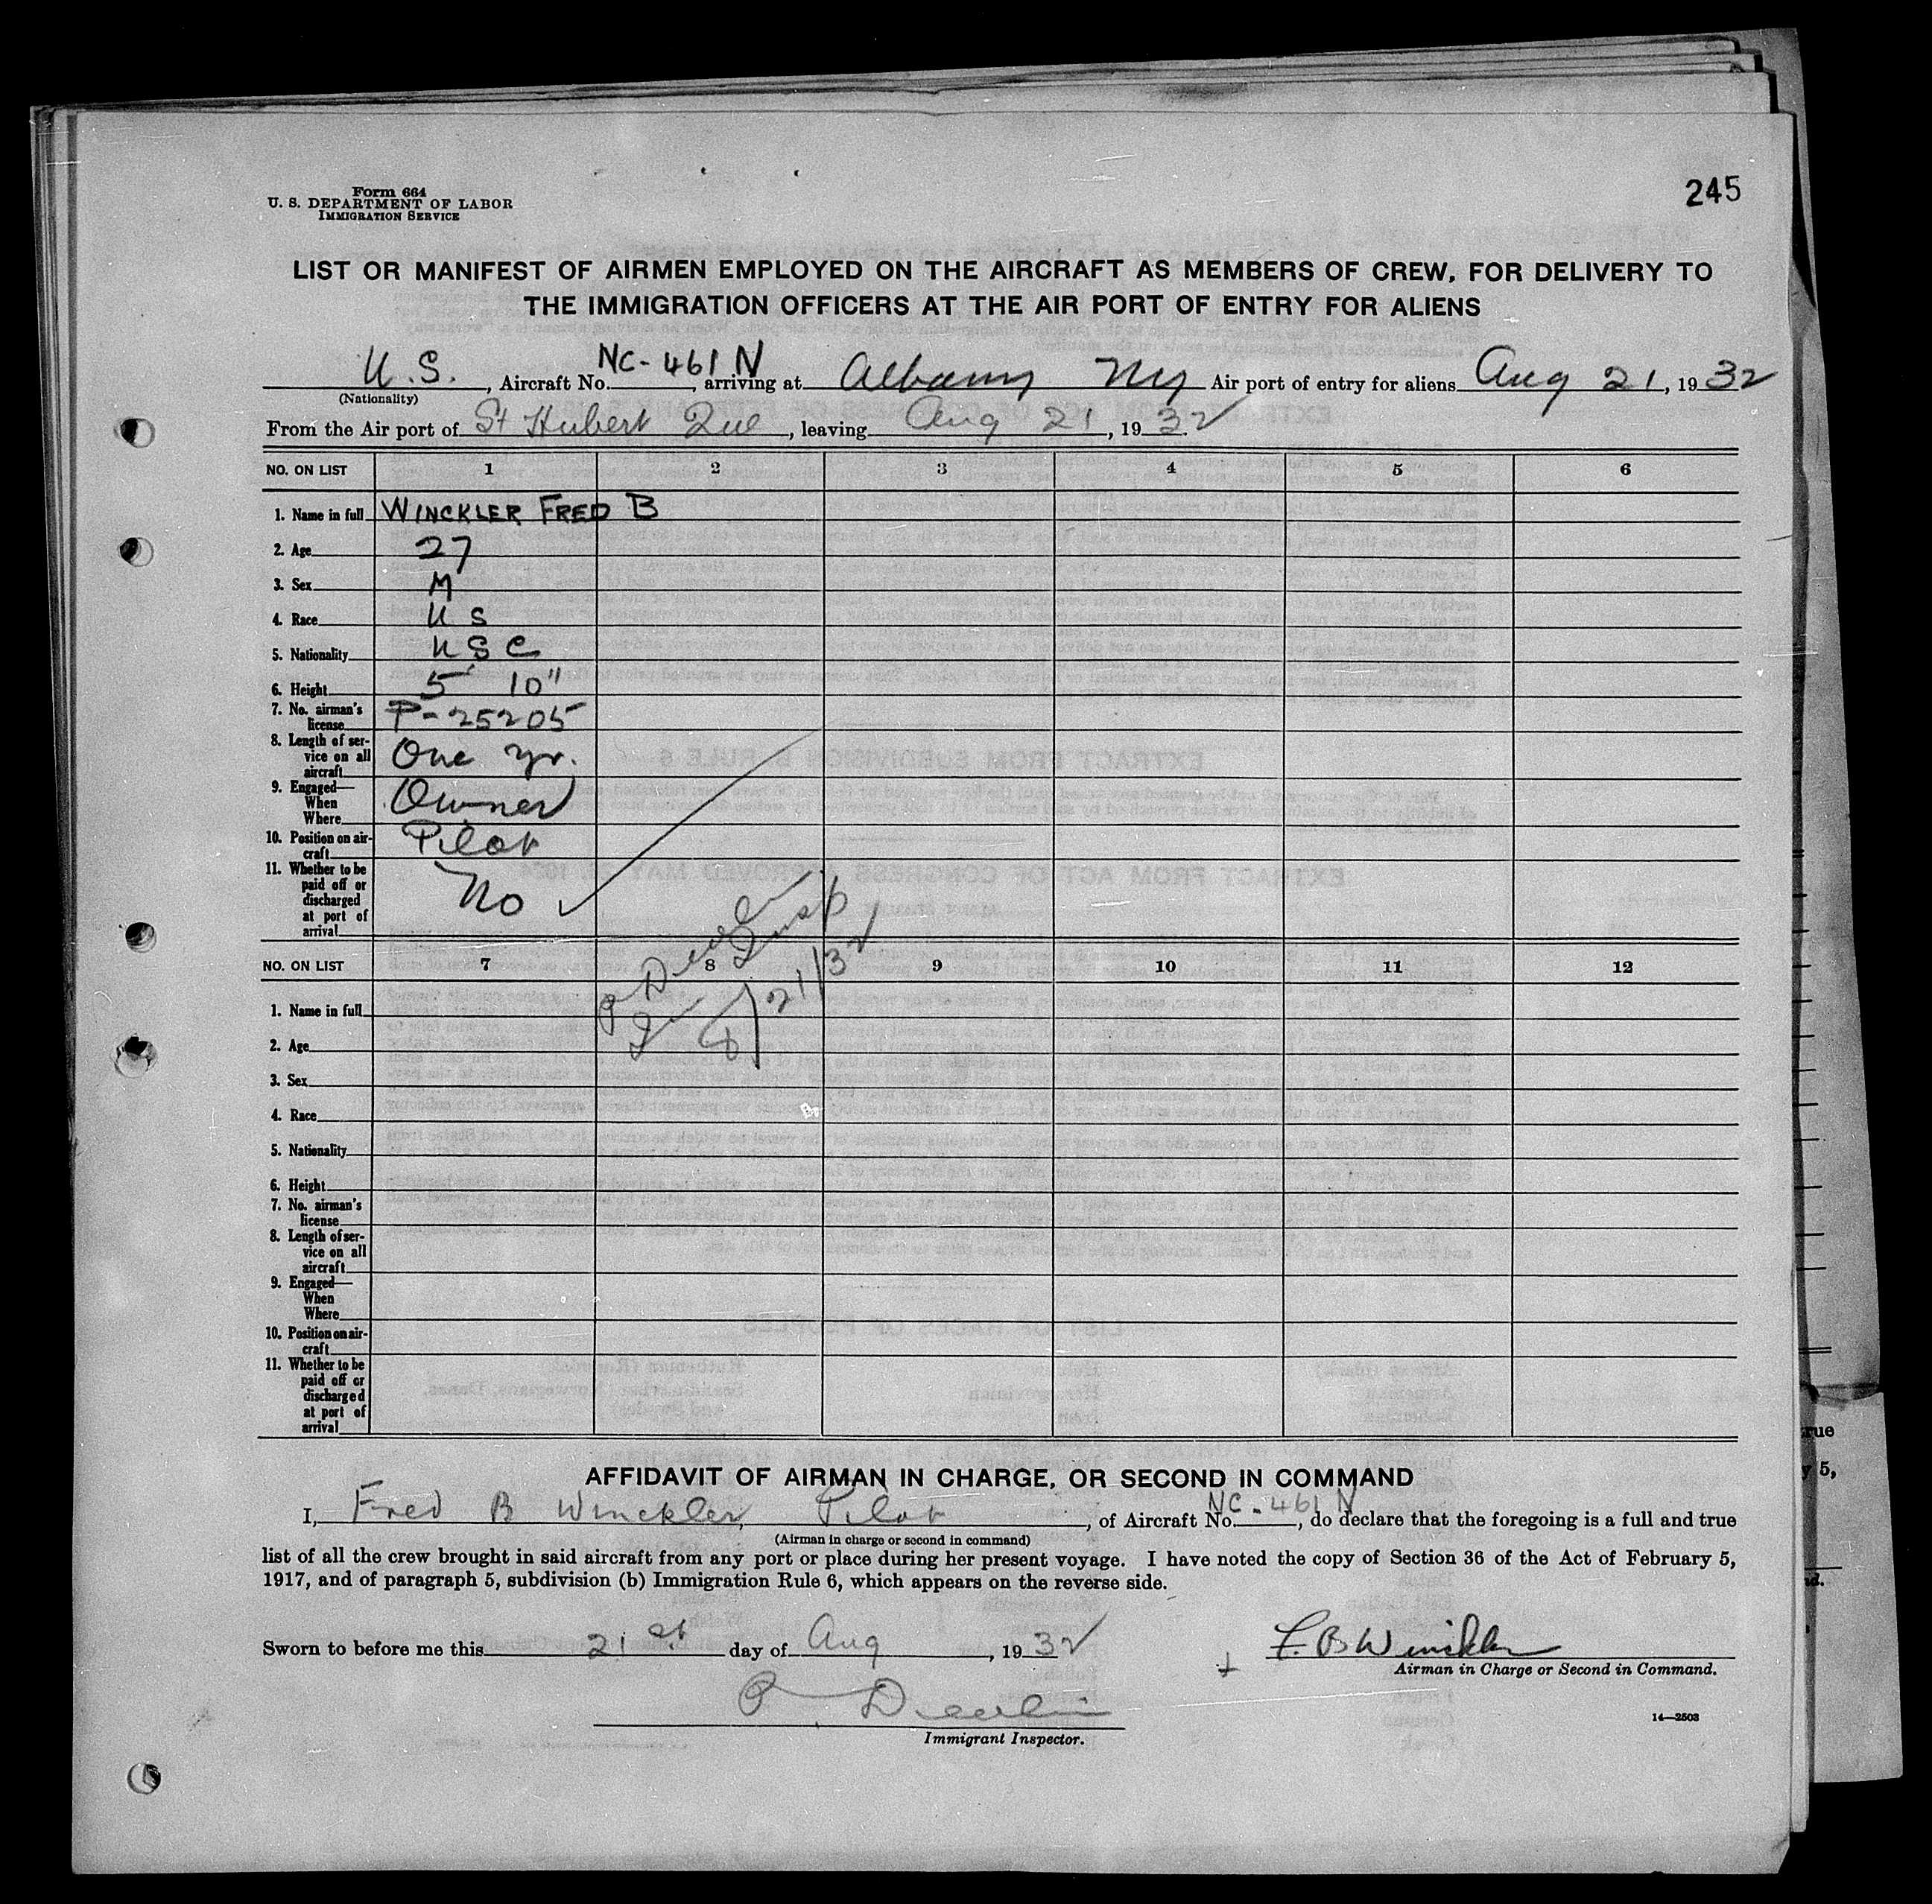 Form 664
U. S. DEPARTMENT OF LABOR
IMMIGRATION SERVICE
245
LIST OR MANIFEST OF AIRMEN EMPLOYED ON THE AIRCRAFT AS MEMBERS OF CREW, FOR DELIVERY TO
THE IMMIGRATION OFFICERS AT THE AIR PORT OF ENTRY FOR ALIENS
U.S., Aircraft No. NC-461N, arriving at Albany Ny Air port of entry for aliens Aug 21, 1932
(Nationality)
From the Air port of St Hubert Que, leaving Aug 21, 1932
NO. ON LIST 1 2 3 4 5 6
1. Name in full WINCKLER FRED B
2. Age 27
3. Sex M
4. Race U S
5. Nationality U S C
6. Height 5' 10"
7. No. airman's
license P-25205
8. Length of ser-
vice on all
aircraft One yr.
9. Engaged—
When
Where Owner
10. Position on air-
craft Pilot
11. Whether to be
paid off or
discharged
at port of
arrival No
P Devlin
Insp
8/21/32
NO. ON LIST 7 8 9 10 11 12
1. Name in full
2. Age
3. Sex
4. Race
5. Nationality
6. Height
7. No. airman's
license
8. Length of ser-
vice on all
aircraft
9. Engaged—
When
Where
10. Position on air-
craft
11. Whether to be
paid off or
discharged
at port of
arrival
AFFIDAVIT OF AIRMAN IN CHARGE, OR SECOND IN COMMAND
I, Fred B Winckler, Pilot, of Aircraft No. NC-461N, do declare that the foregoing is a full and true
(Airman in charge or second in command)
list of all the crew brought in said aircraft from any port or place during her present voyage. I have noted the copy of Section 36 of the Act of February 5,
1917, and of paragraph 5, subdivision (b) Immigration Rule 6, which appears on the reverse side.
Sworn to before me this 21st day of Aug, 1932
F. B Winckler
Airman in Charge or Second in Command.
P Devlin
Immigrant Inspector.
14—2503